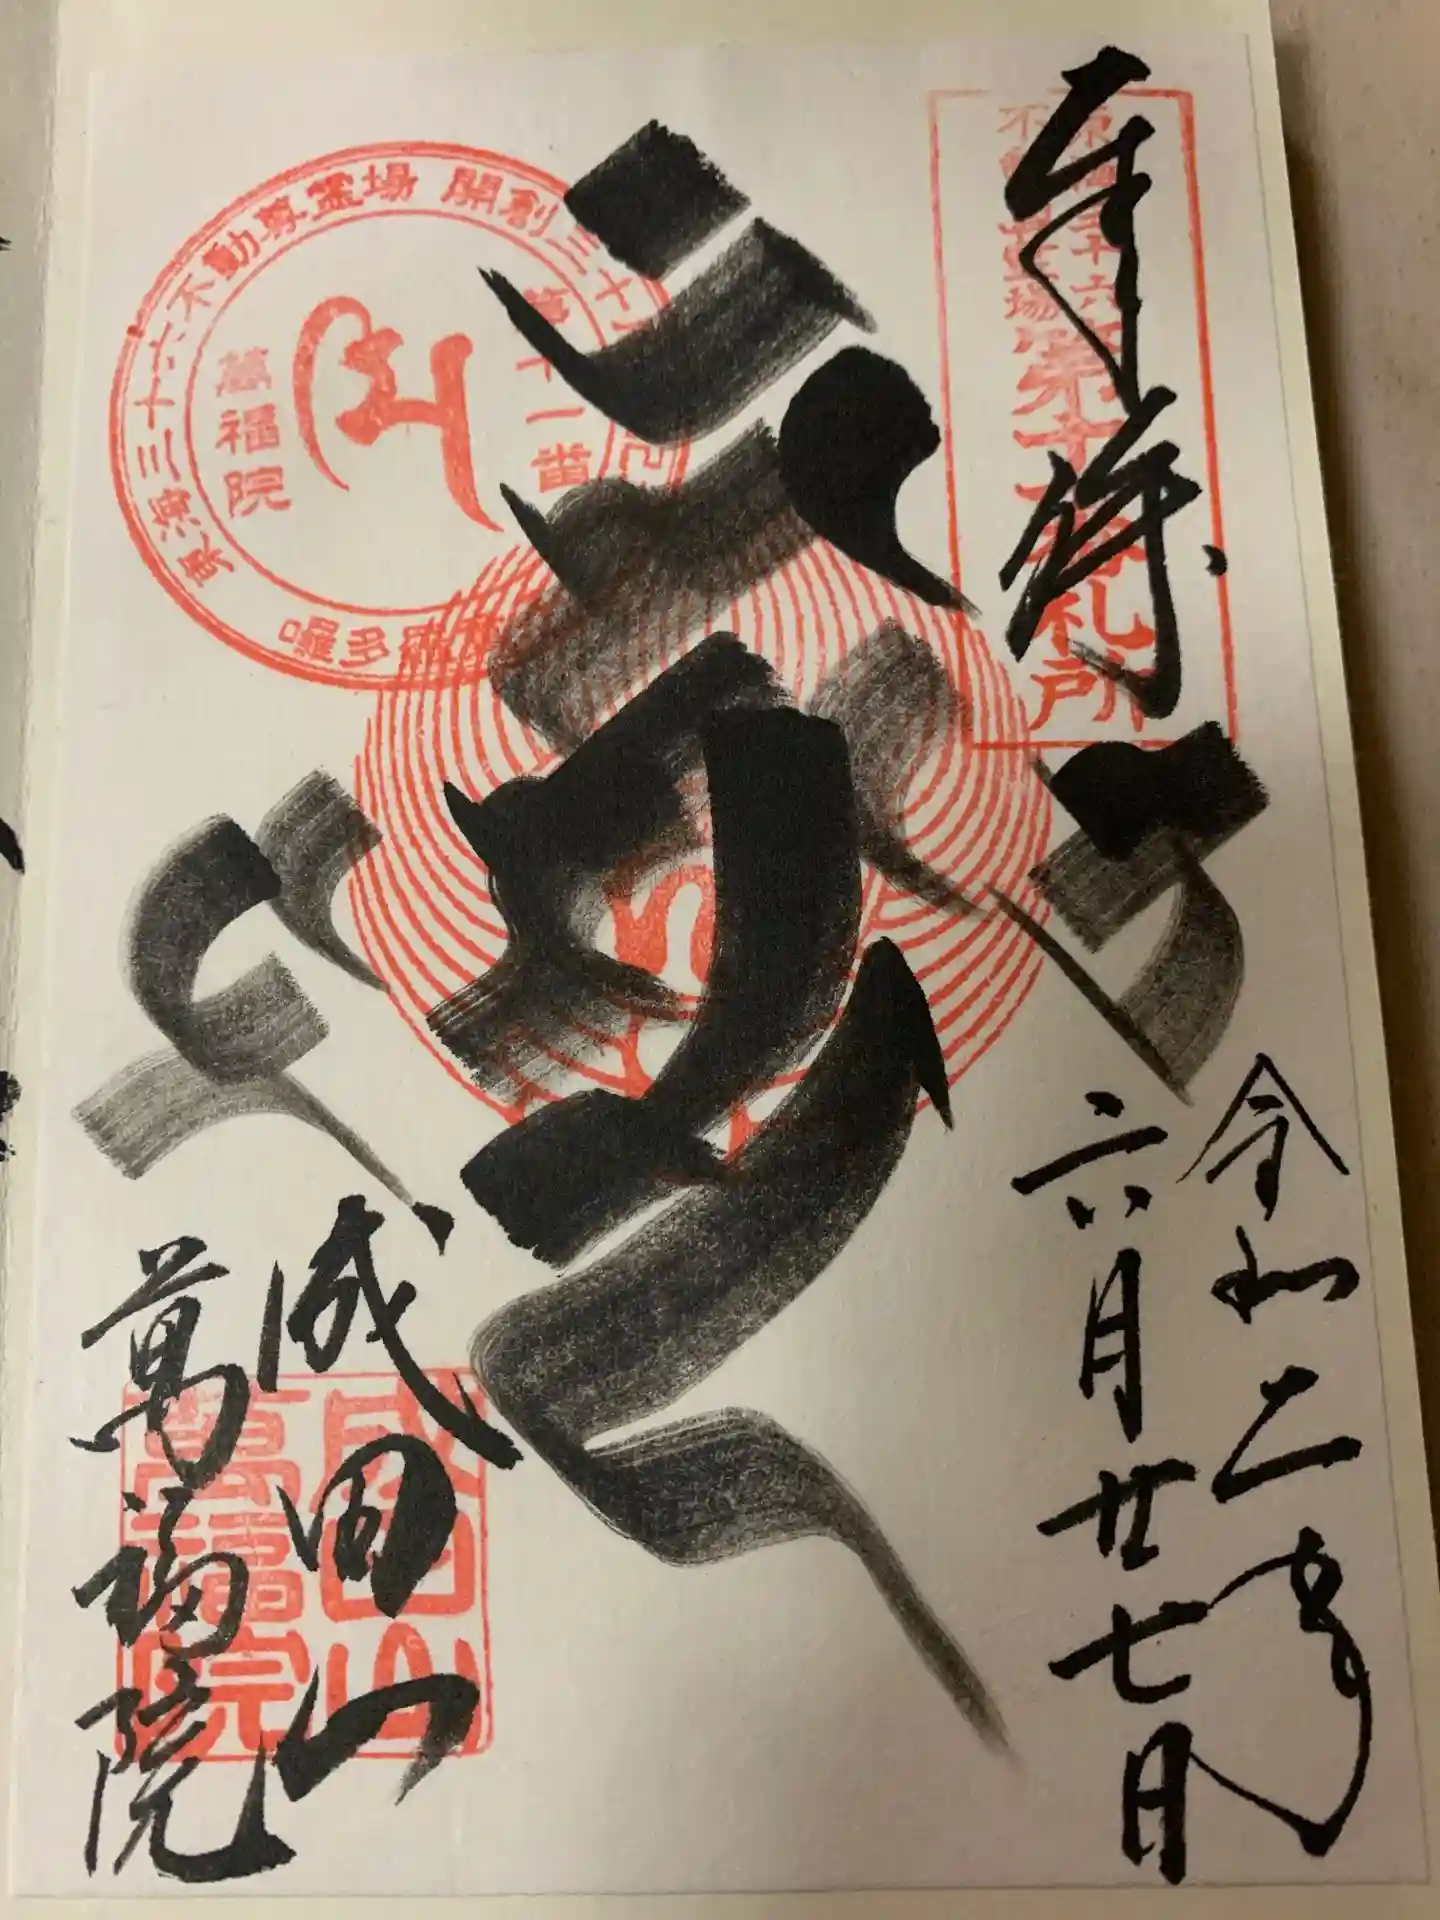 奉拝
東海三十六
不動尊霊場
第十一番札所
令和二年
六月廿七日
東海三十六不動尊霊場 開創三十
第十一番
萬福院
成田山
萬福院
成田山
萬福院